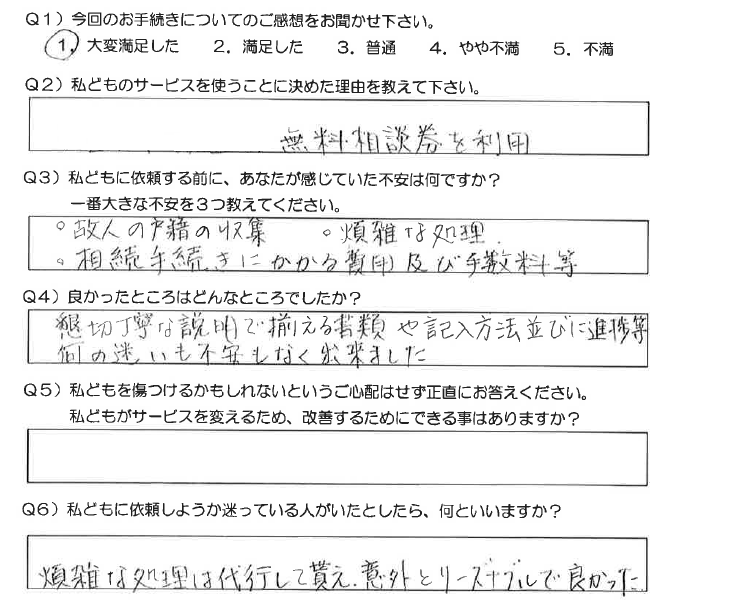 Q1）今回のお手続きについてのご感想をお聞かせ下さい。
1．大変満足した　2．満足した　3．普通　4．やや不満　5．不満
Q2）私どものサービスを使うことに決めた理由を教えて下さい。
無料相談券を利用
Q3）私どもに依頼する前に、あなたが感じていた不安は何ですか？
一番大きな不安を３つ教えてください。
○故人の戸籍の収集　○煩雑な処理.
○相続手続きにかかる費用及び手数料等
Q4）良かったところはどんなところでしたか？
懇切丁寧な説明で揃える書類や記入方法並びに進捗等
何の迷いも不安もなく出来ました
Q5）私どもを傷つけるかもしれないというご心配はせず正直にお答えください。
私どもがサービスを変えるため、改善するためにできる事はありますか？
Q6）私どもに依頼しようか迷っている人がいたとしたら、何といいますか？
煩雑な処理は代行して貰え、意外とリーズナブルで良かった.